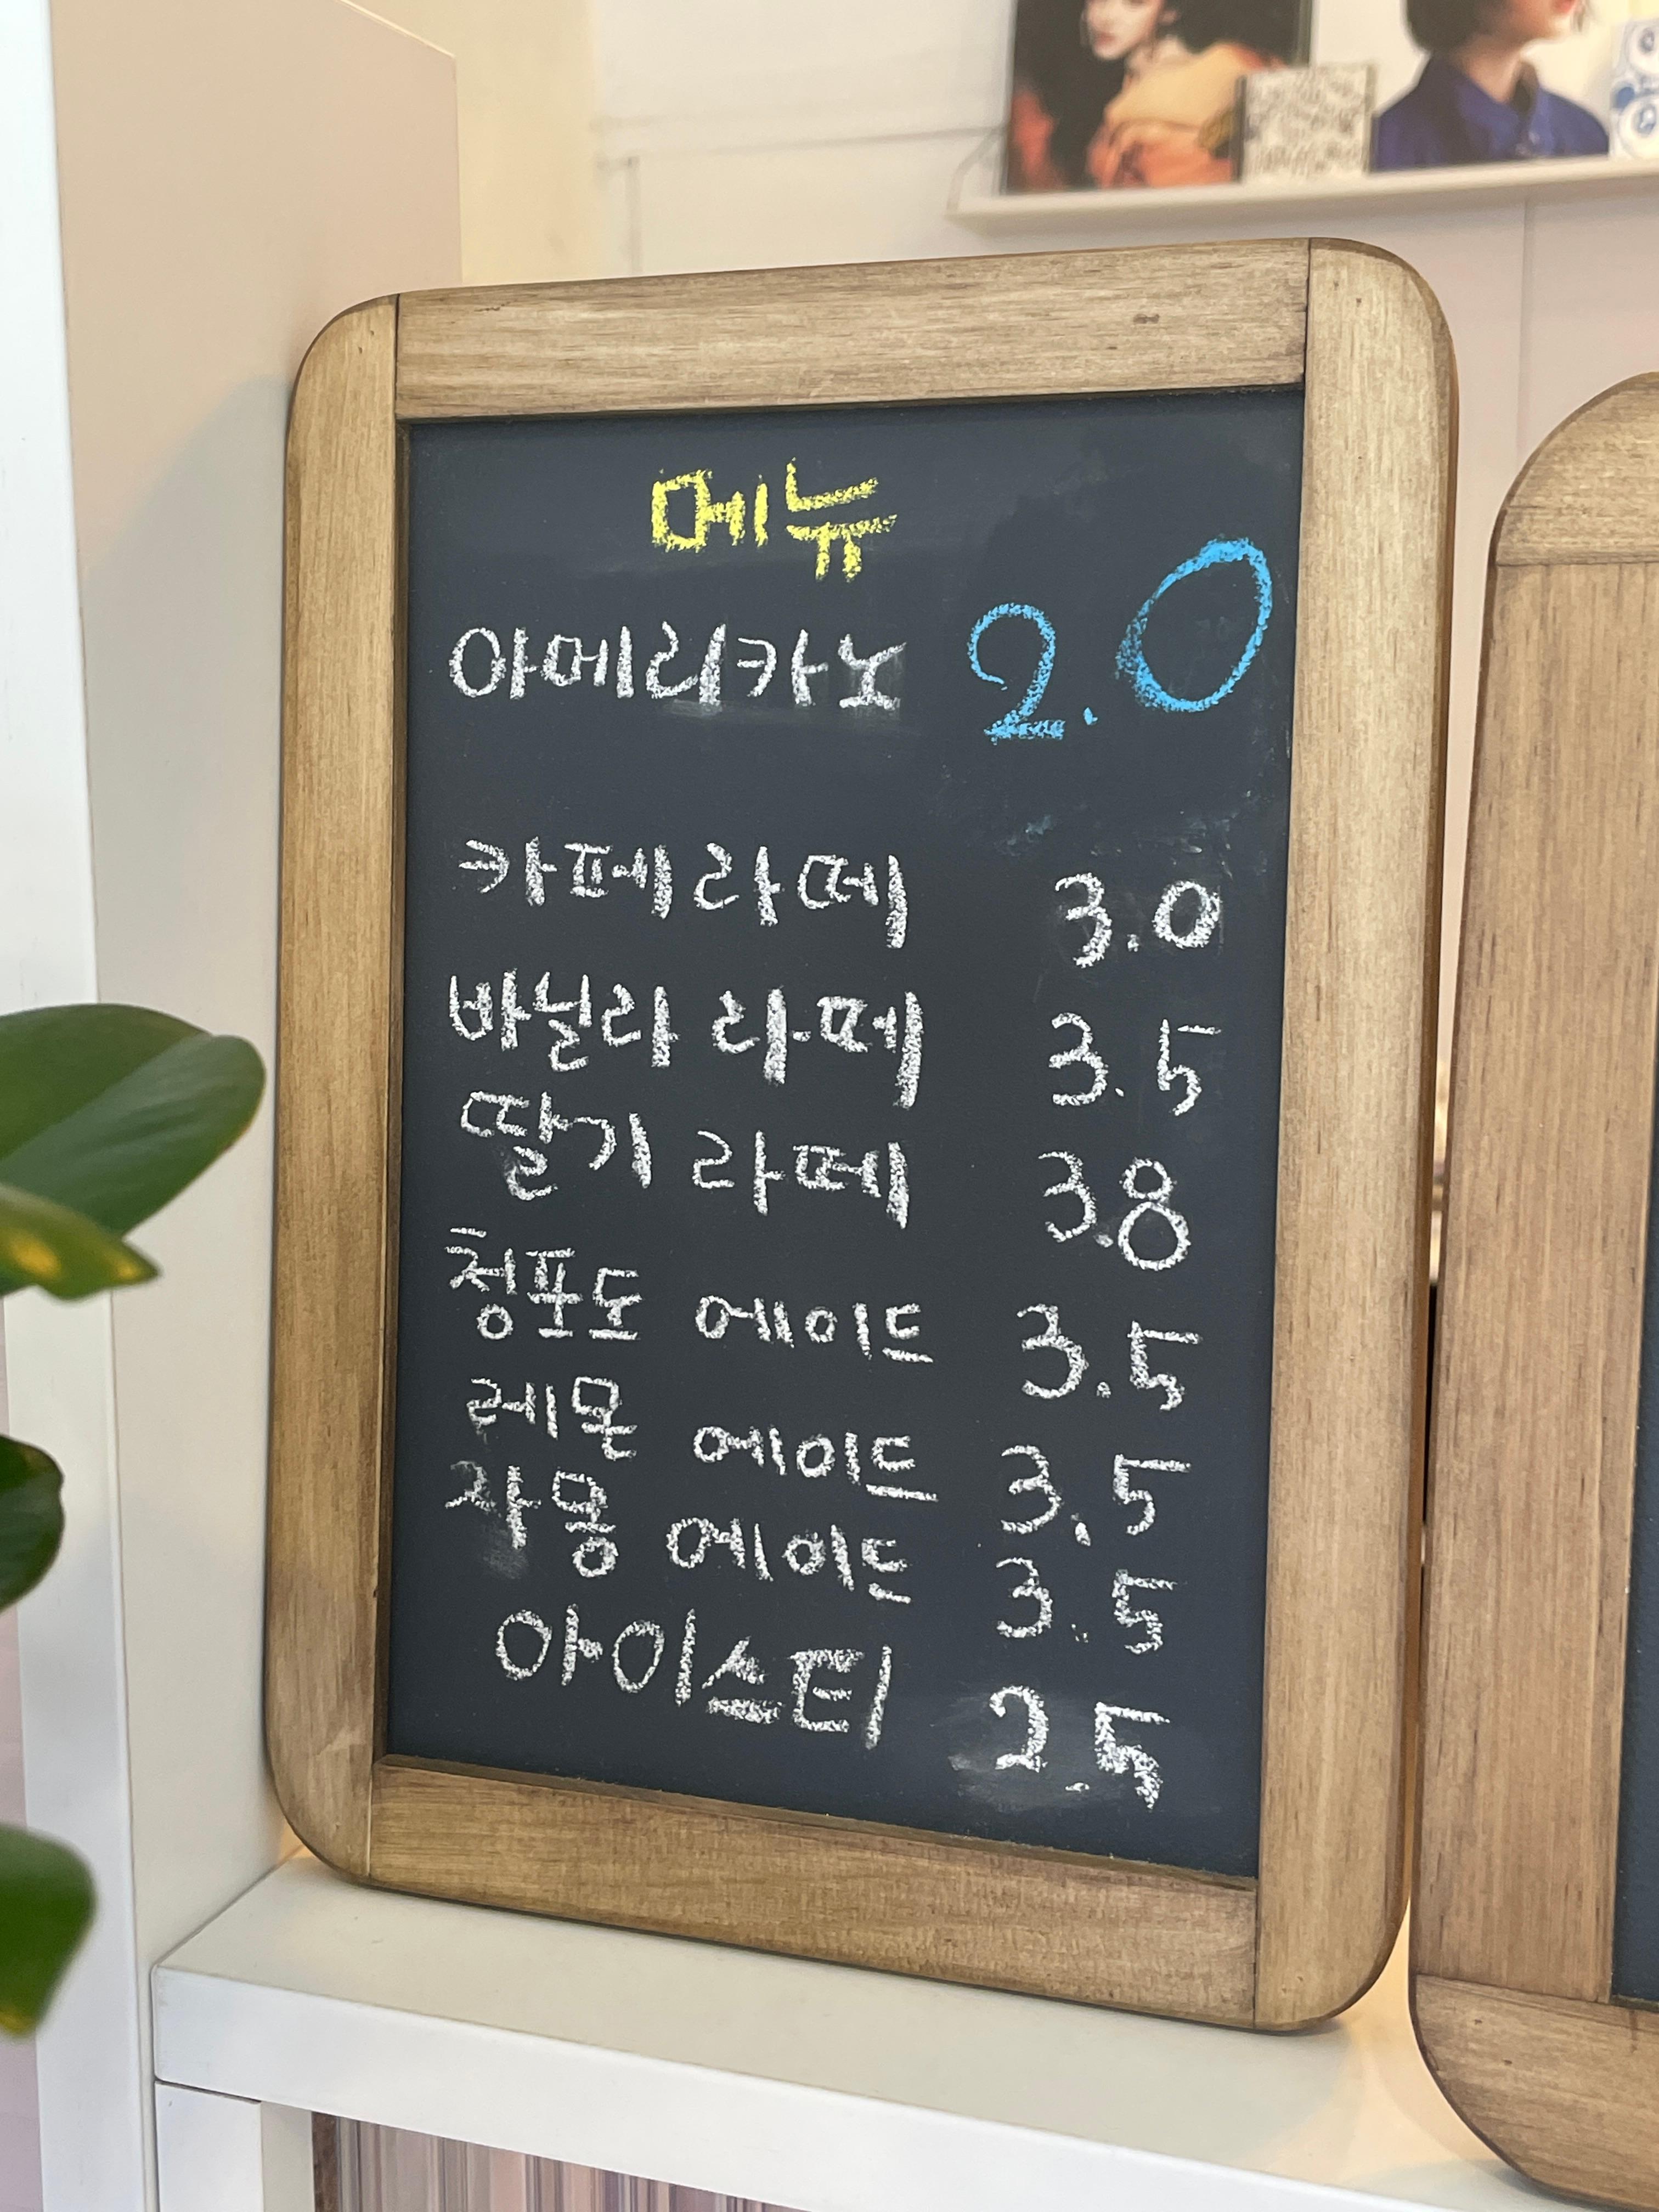 메뉴
아메리카노 2.0
카페라떼 3.0
바닐라 라떼 3.5
딸기 라떼 3.8
청포도 에이드 3.5
레몬 에이드 3.5
자몽 에이드 3.5
아이스티 2.5